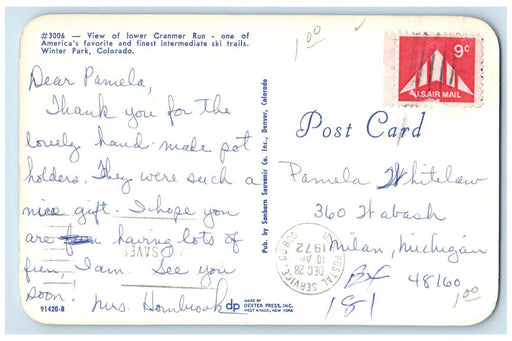 #3006 — View of lower Cranmer Run - one of
America's favorite and finest intermediate ski trails.
Winter Park, Colorado.
1 00
9c
U.S. AIR MAIL
Dear Pamela,
Thank you for the
lovely hand-made pot
holders. They were such a
nice gift. I hope you
are having lots of
fun, I am. See you
soon. Mrs. Hornbrook
Pub. by Sanborn Souvenir Co. Inc., Denver, Colorado
Post Card
Pamela Whitelaw
360 Wabash
Milan, Michigan
48160
POSTAL SERVICE, CO
DEC 28
10 AM
1972
181
1 00
dp
MADE BY
DEXTER PRESS, INC.
WEST NYACK, NEW YORK
91420-B